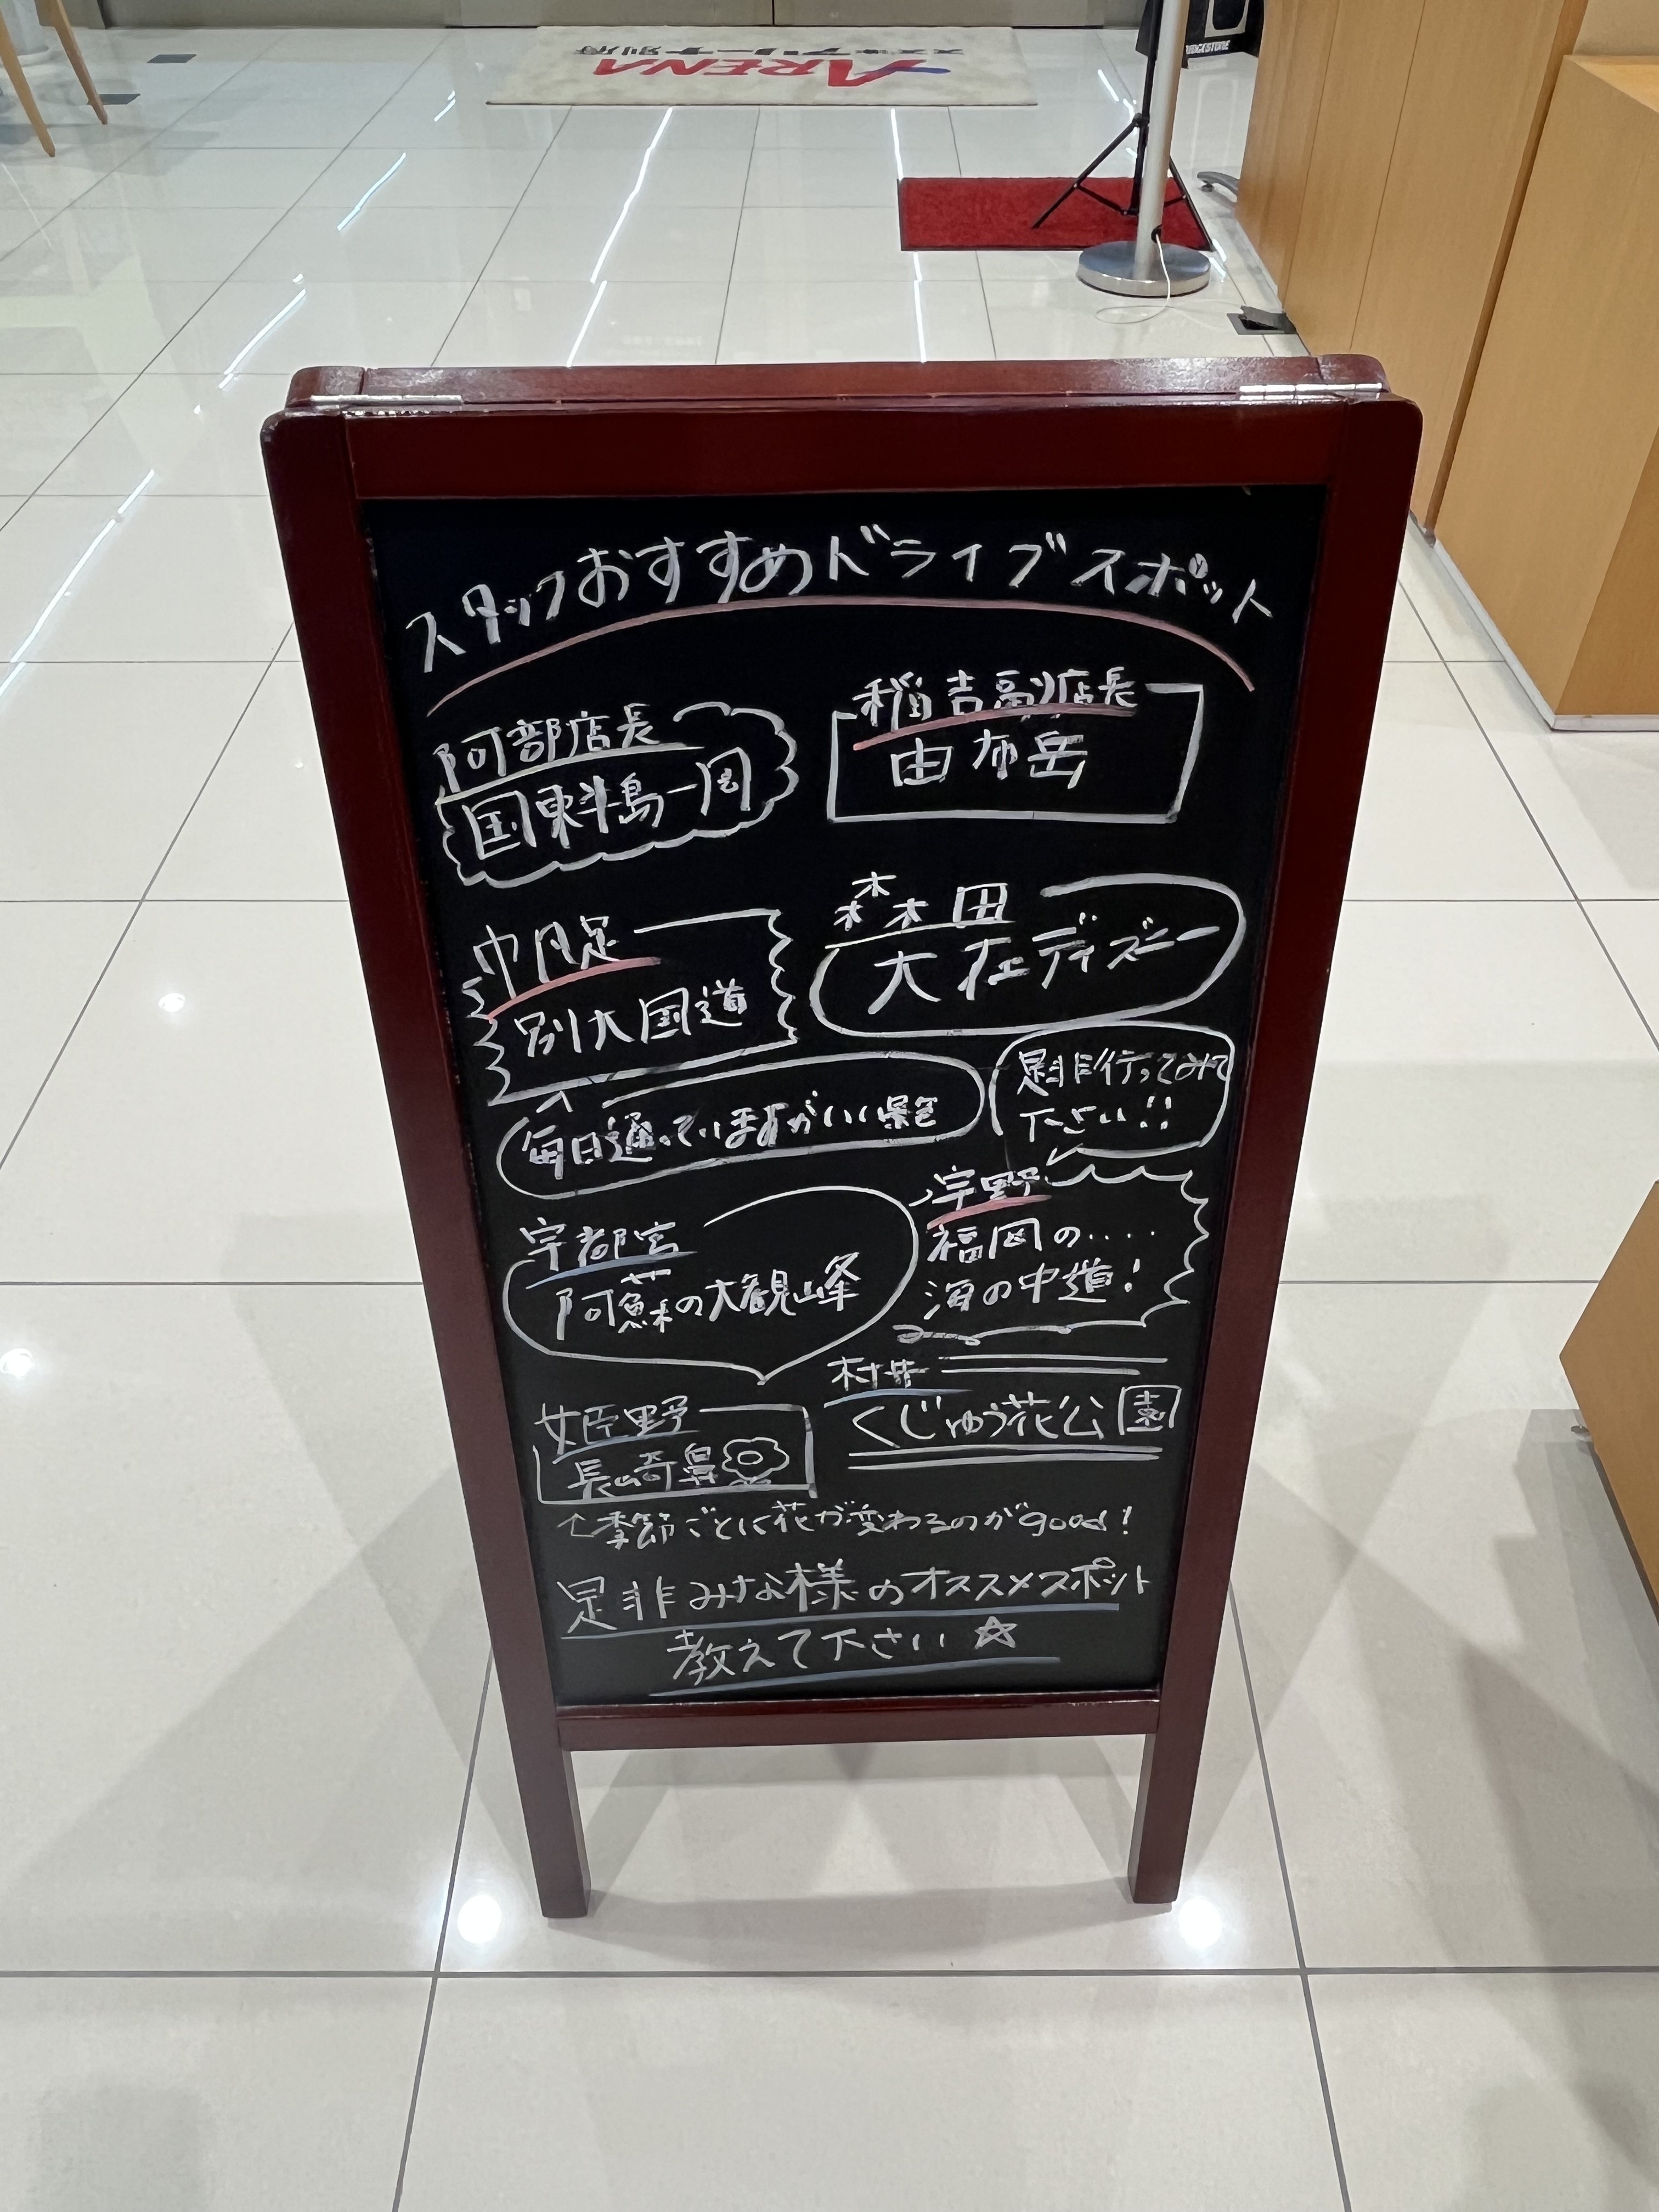 スズキアリーナ別府
ARENA
BRIDGESTONE
スタッフおすすめドライブスポット
阿部店長
国東半島一周
稲吉副店長
由布岳
別大国道
森田
大在ディズニー
毎日通っていますがいい景色
是非行ってみて
下さい!!
宇都宮
阿蘇の大観峰
宇野
福岡の....
海の中道!
姫野
長崎鼻
村井
くじゅう花公園
↑季節ごとに花が変わるのがgood!
是非みな様のオススメスポット
教えて下さい☆